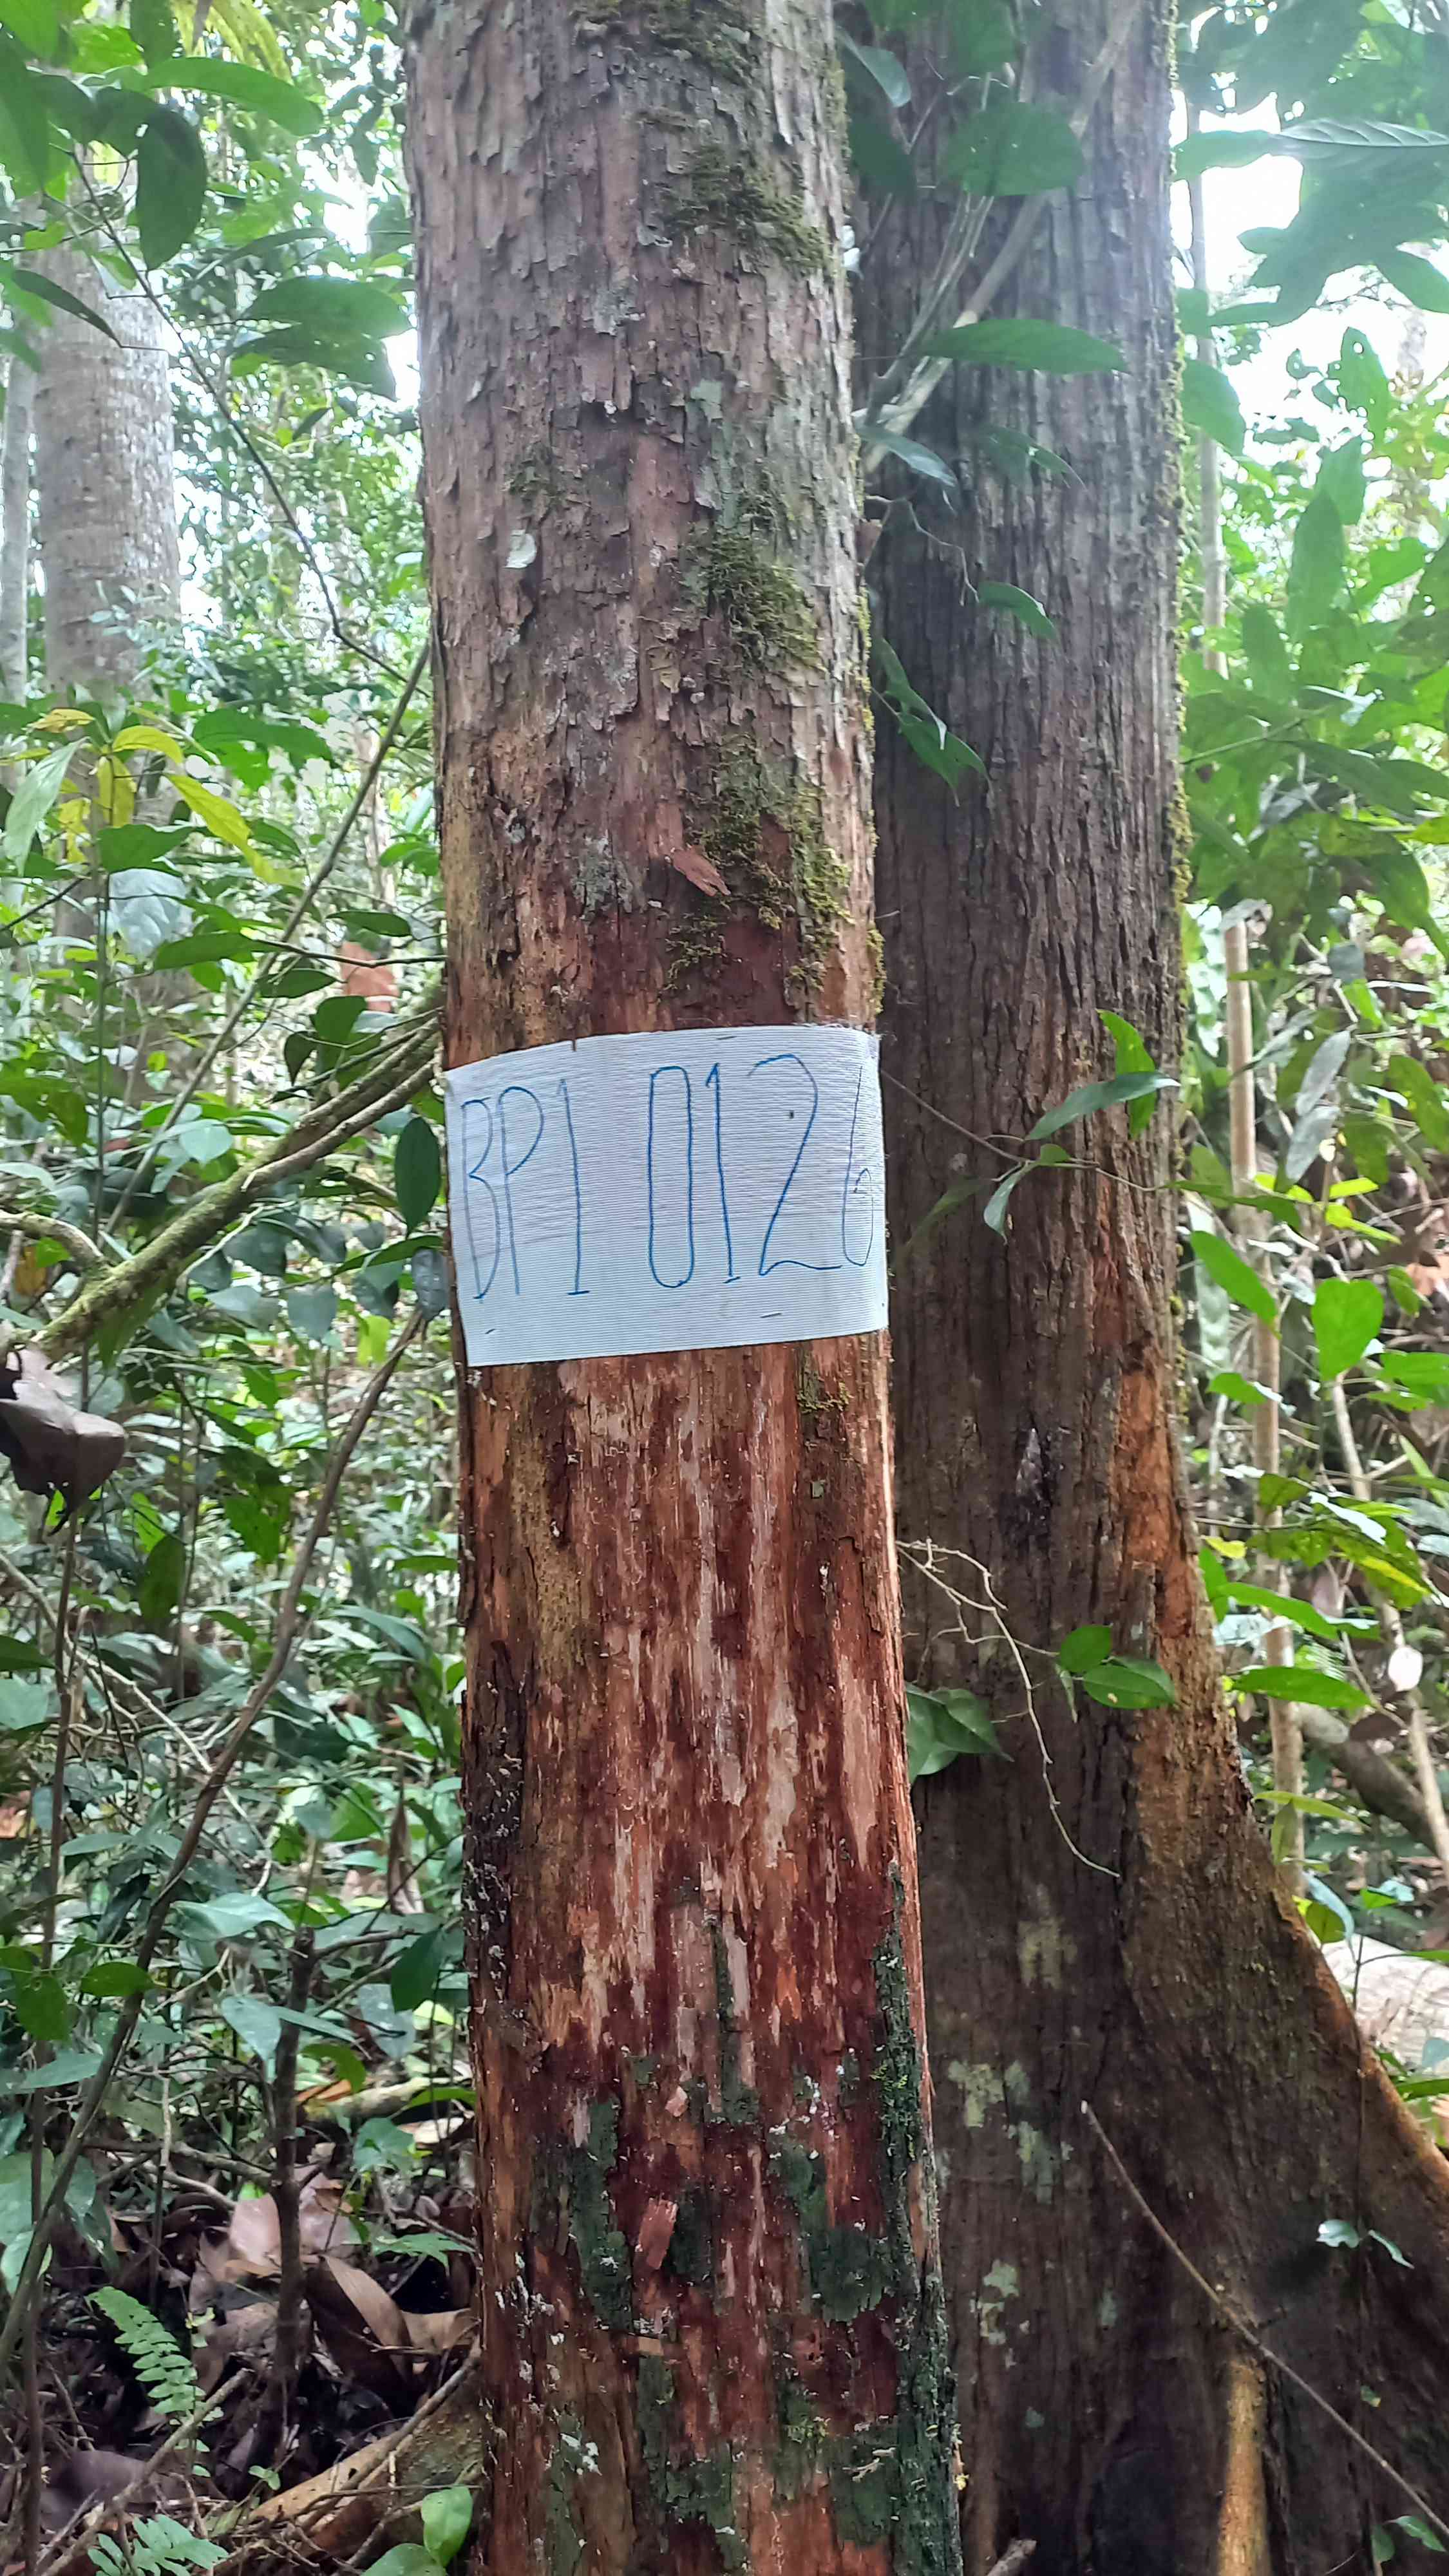 BP1 0126